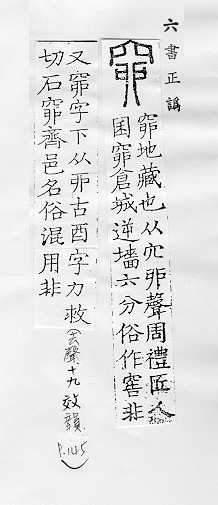 六書正譌
窌地藏也从穴戼聲周禮匠人
囷窌倉城逆墻六分俗作窖非
又窌字下从丣古酉字力救
切石窌齊邑名俗混用非
(去聲十九效韻
P.145)